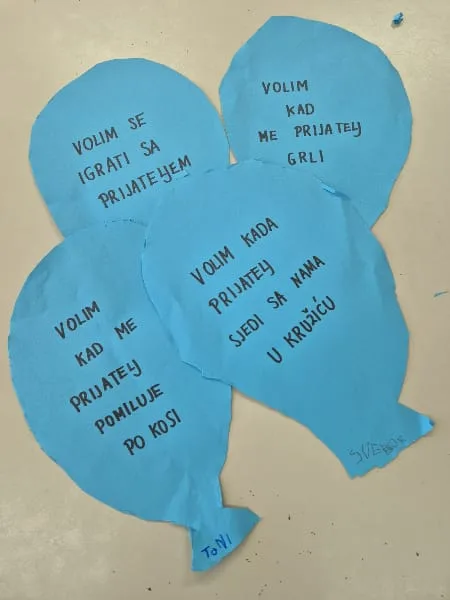 VOLIM SE
IGRATI SA
PRIJATELJEM
VOLIM
KAD
ME PRIJATELJ
GRLI
VOLIM KADA
PRIJATELJ
SJEDI SA NAMA
U KRUŽIĆU
VOLIM
KAD ME
PRIJATELJ
POMILUJE
PO KOSI
TONI